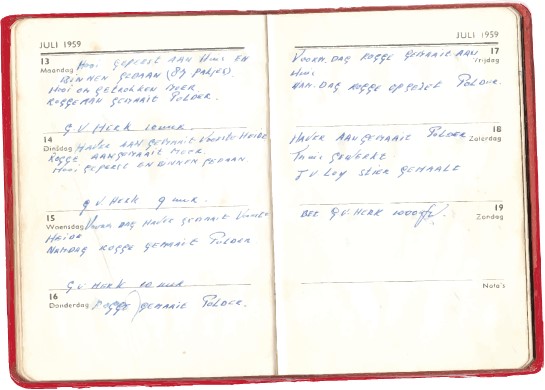 JULI 1959
13
Maandag Hooi geperst aan Huis en
Binnen gedaan (89 pakjes).
Hooi om getrokken Meer
Rogge aan gemaait Polder.
G.V. Herk 10 uur.
14
Dinsdag Haver aan gemaait Voorste Heide
Rogge aangemaait Meer.
Hooi geperst en Binnen gedaan
G V Herk 9 uur.
15
Woensdag Voorm dag Haver gemaait Voorste
Heide
Namdag Rogge gemaait Polder
G.V. Herk 10 uur
16
Donderdag Rogge gemaait Polder.
JULI 1959
17
Vrijdag
Voorm. dag Rogge gemaait aan
Huis
Nam. dag Rogge opgezet Polder.
18
Zaterdag
Haver aangemaait Polder
Thuis gewerkt
J v Loy stier gemaakt
19
Zondag
G V Herk 1000
Nota's